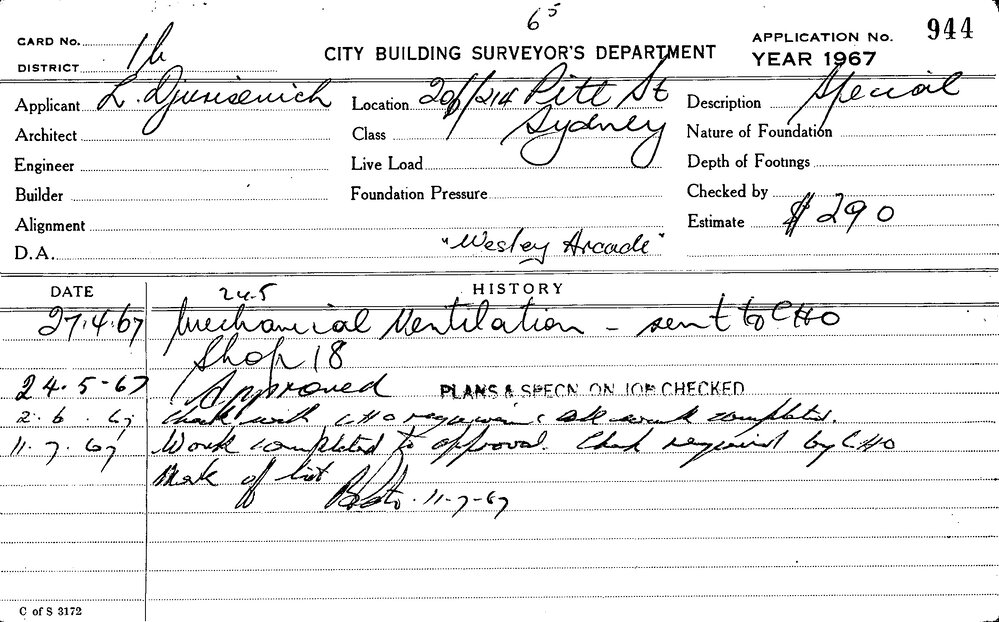 65
CARD No.
DISTRICT 1b
CITY BUILDING SURVEYOR'S DEPARTMENT
APPLICATION No. 944
YEAR 1967
Applicant L. Djurisevich
Location 206/214 Pitt St
Sydney
Description Special
Architect
Class
Nature of Foundation
Engineer
Live Load
Depth of Footings
Builder
Foundation Pressure
Checked by
Alignment
Estimate $290
D.A.
"Wesley Arcade"
DATE
HISTORY
24.5
27.4.67 Mechanical Ventilation - sent to CHO
Shop 18
24.5-67 Approved PLANS & SPECN. ON JOB CHECKED
2.6.67 Check with CHO all work completed.
11.7.67 Work completed to approval. Check required by CHO
Mark off list
11-7-67
C of S 3172